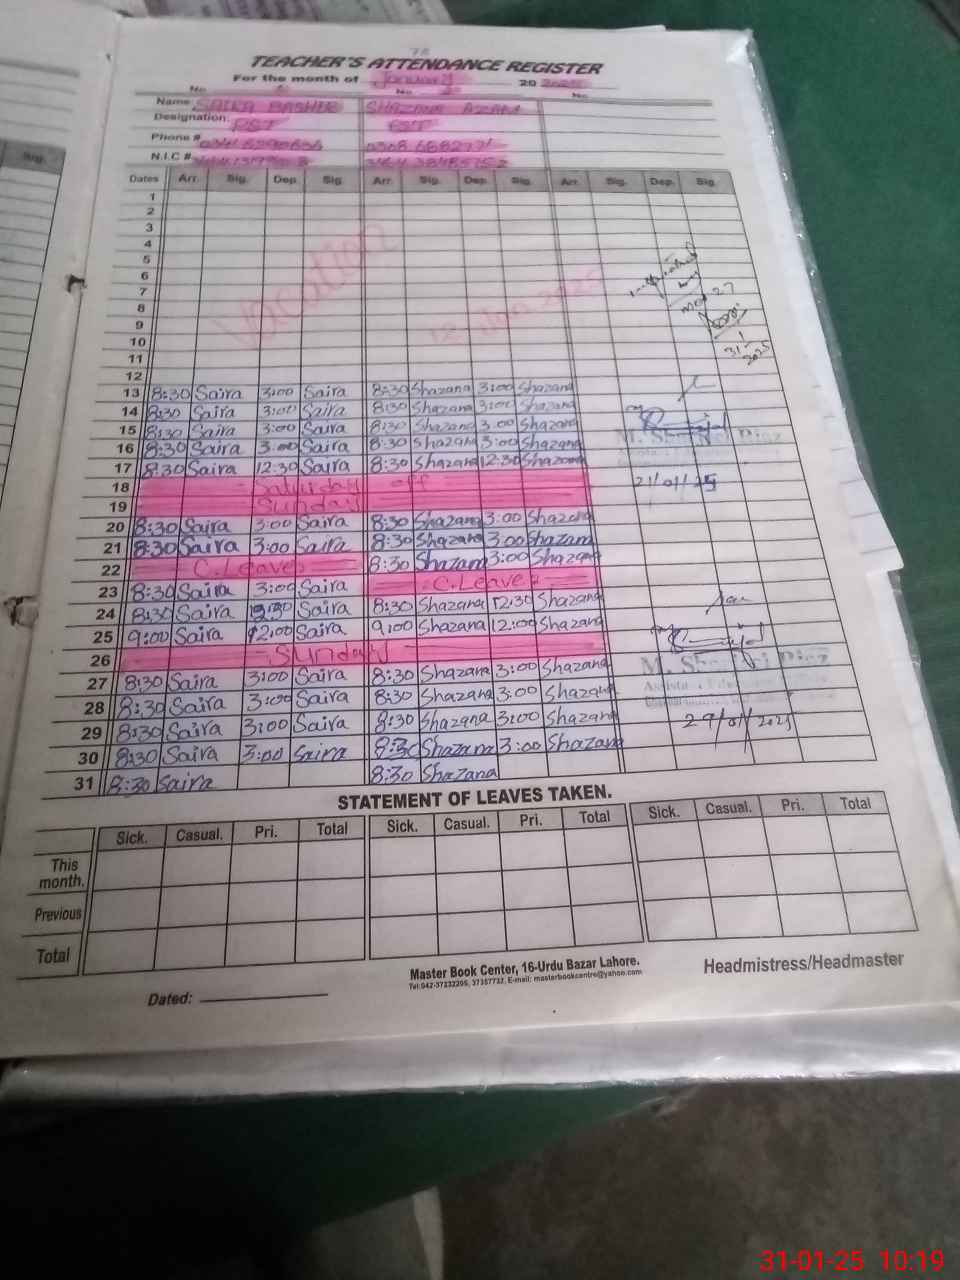 78
TEACHER'S ATTENDANCE REGISTER
For the month of January 20 2025
No. No. No.
Name SAIRA BASHIR SHAZANA AZAM
Designation: PST PST
Phone #
N.I.C #
Dates Arr. Sig. Dep. Sig. Arr. Sig. Dep. Sig. Arr. Sig. Dep. Sig.
1
2
3
4
5
6
7
8
9
10
11
12
Vacation
12 Jan 2025
31/1 2025
13 8:30 Saira 3:00 Saira 8:30 Shazana 3:00 Shazana
14 8:30 Saira 3:00 Saira 8:30 Shazana 3:00 Shazana
15 8:30 Saira 3:00 Saira 8:30 Shazana 3:00 Shazana
16 8:30 Saira 3:00 Saira 8:30 Shazana 3:00 Shazana
17 8:30 Saira 12:30 Saira 8:30 Shazana 12:30 Shazana
18 Saturday off
19 Sunday
21/01/25
20 8:30 Saira 3:00 Saira 8:30 Shazana 3:00 Shazana
21 8:30 Saira 3:00 Saira 8:30 Shazana 3:00 Shazana
22 C.Leave 8:30 Shazana 3:00 Shazana
23 8:30 Saira 3:00 Saira C.Leave
24 8:30 Saira 12:30 Saira 8:30 Shazana 12:30 Shazana
25 9:00 Saira 12:00 Saira 9:00 Shazana 12:00 Shazana
26 Sunday
27 8:30 Saira 3:00 Saira 8:30 Shazana 3:00 Shazana
28 8:30 Saira 3:00 Saira 8:30 Shazana 3:00 Shazana
29 8:30 Saira 3:00 Saira 8:30 Shazana 3:00 Shazana
29/01/2025
30 8:30 Saira 3:00 Saira 8:30 Shazana 3:00 Shazana
31 8:30 Saira 8:30 Shazana
STATEMENT OF LEAVES TAKEN.
Sick. Casual. Pri. Total Sick. Casual. Pri. Total Sick. Casual. Pri. Total
This month.
Previous
Total
Dated:
Master Book Center, 16-Urdu Bazar Lahore.
Headmistress/Headmaster
31-01-25 10:19